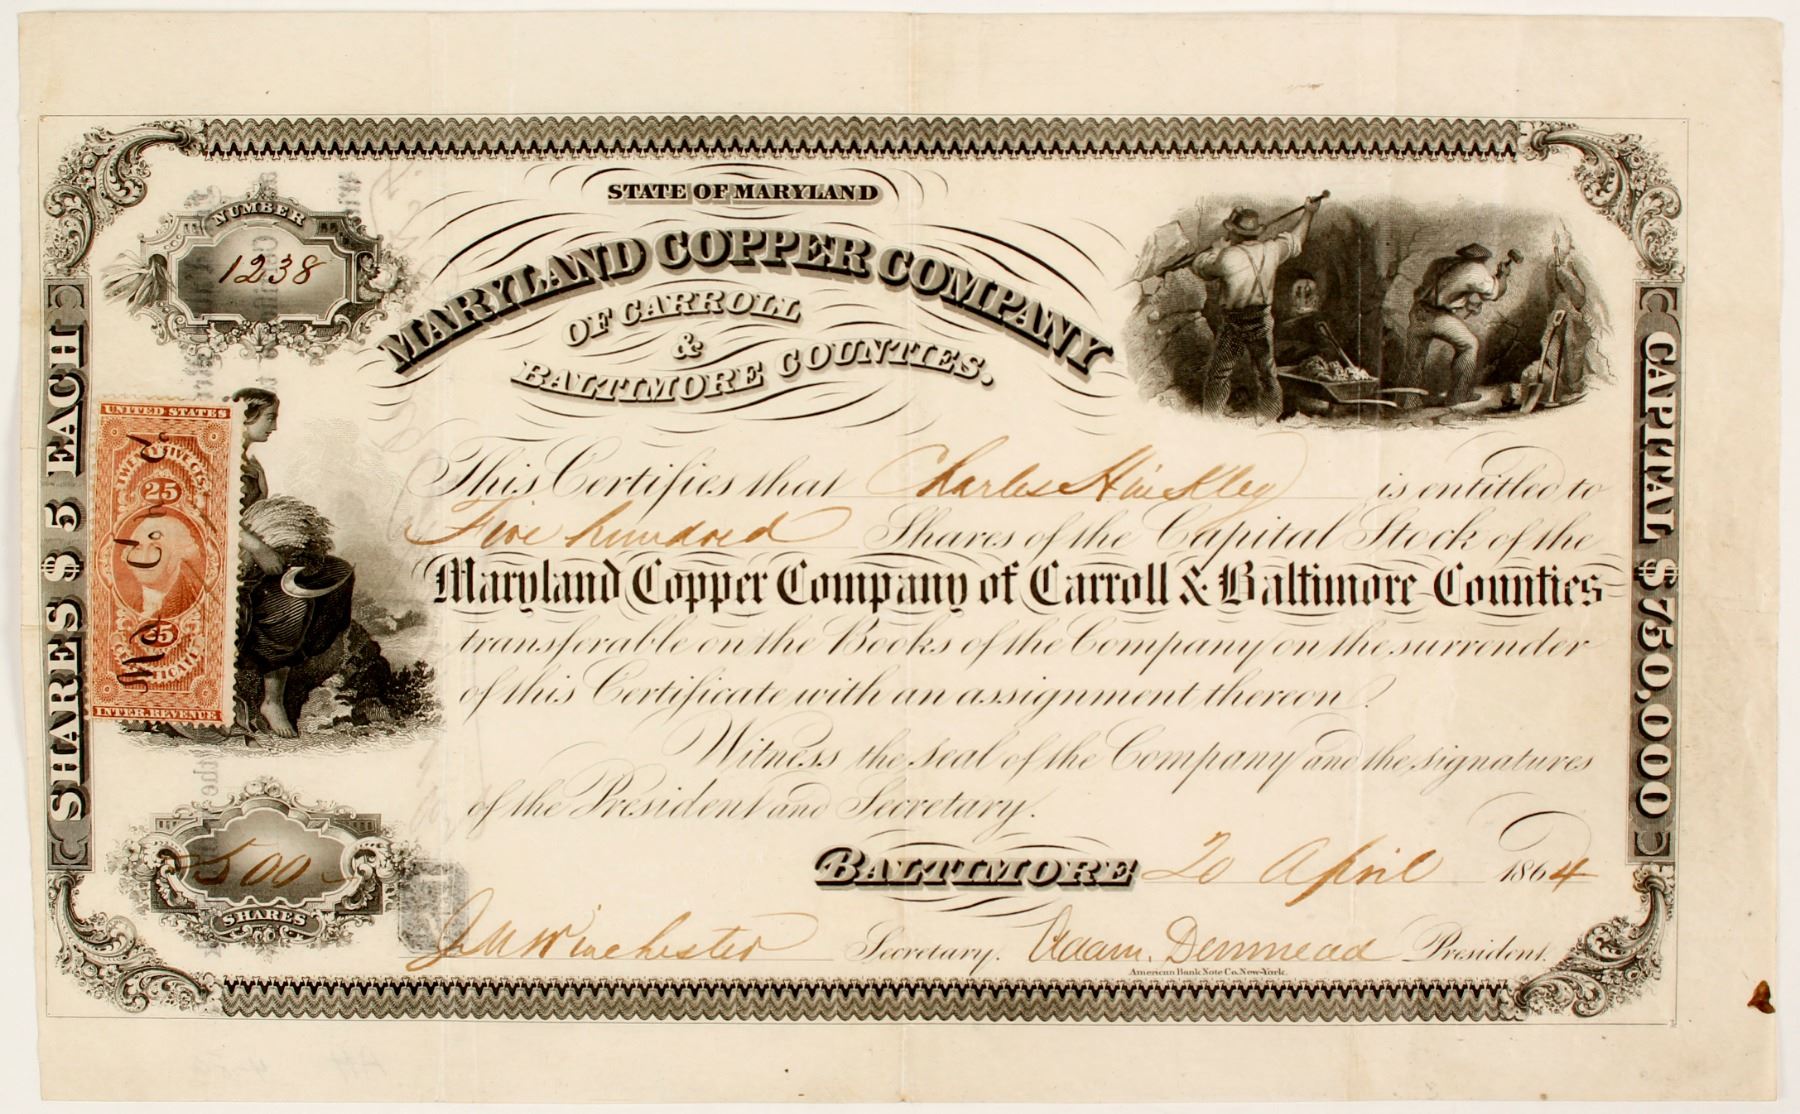 STATE OF MARYLAND
NUMBER
1238
MARYLAND COPPER COMPANY
OF CARROLL
&
BALTIMORE COUNTIES.
SHARES $5 EACH
CAPITAL $750,000
UNITED STATES
TWENTY FIVE CTS.
25
Md C. Co
25
INTER. REVENUE
This Certifies that Charles Hinckley is entitled to
Five hundred Shares of the Capital Stock of the
Maryland Copper Company of Carroll & Baltimore Counties
transferable on the Books of the Company on the surrender
of this Certificate with an assignment thereon.
Witness the seal of the Company and the signatures
of the President and Secretary.
BALTIMORE 20 April 1864
500
SHARES
J M Winchester Secretary. Adam Denmead President.
American Bank Note Co. New-York.